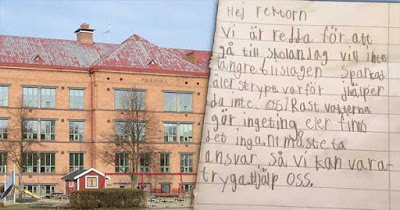 Hej rektorn
Vi är redda för att
gå till skolan Jag vill inte
längre bli slagen Sparkad
äler strypt varför jhälper
du inte. oss? Rast vakterna
gär ingeting eler fins
det inga. Ni måste ta
ansvar, så vi kan vara
tryga. Hjälp oss.